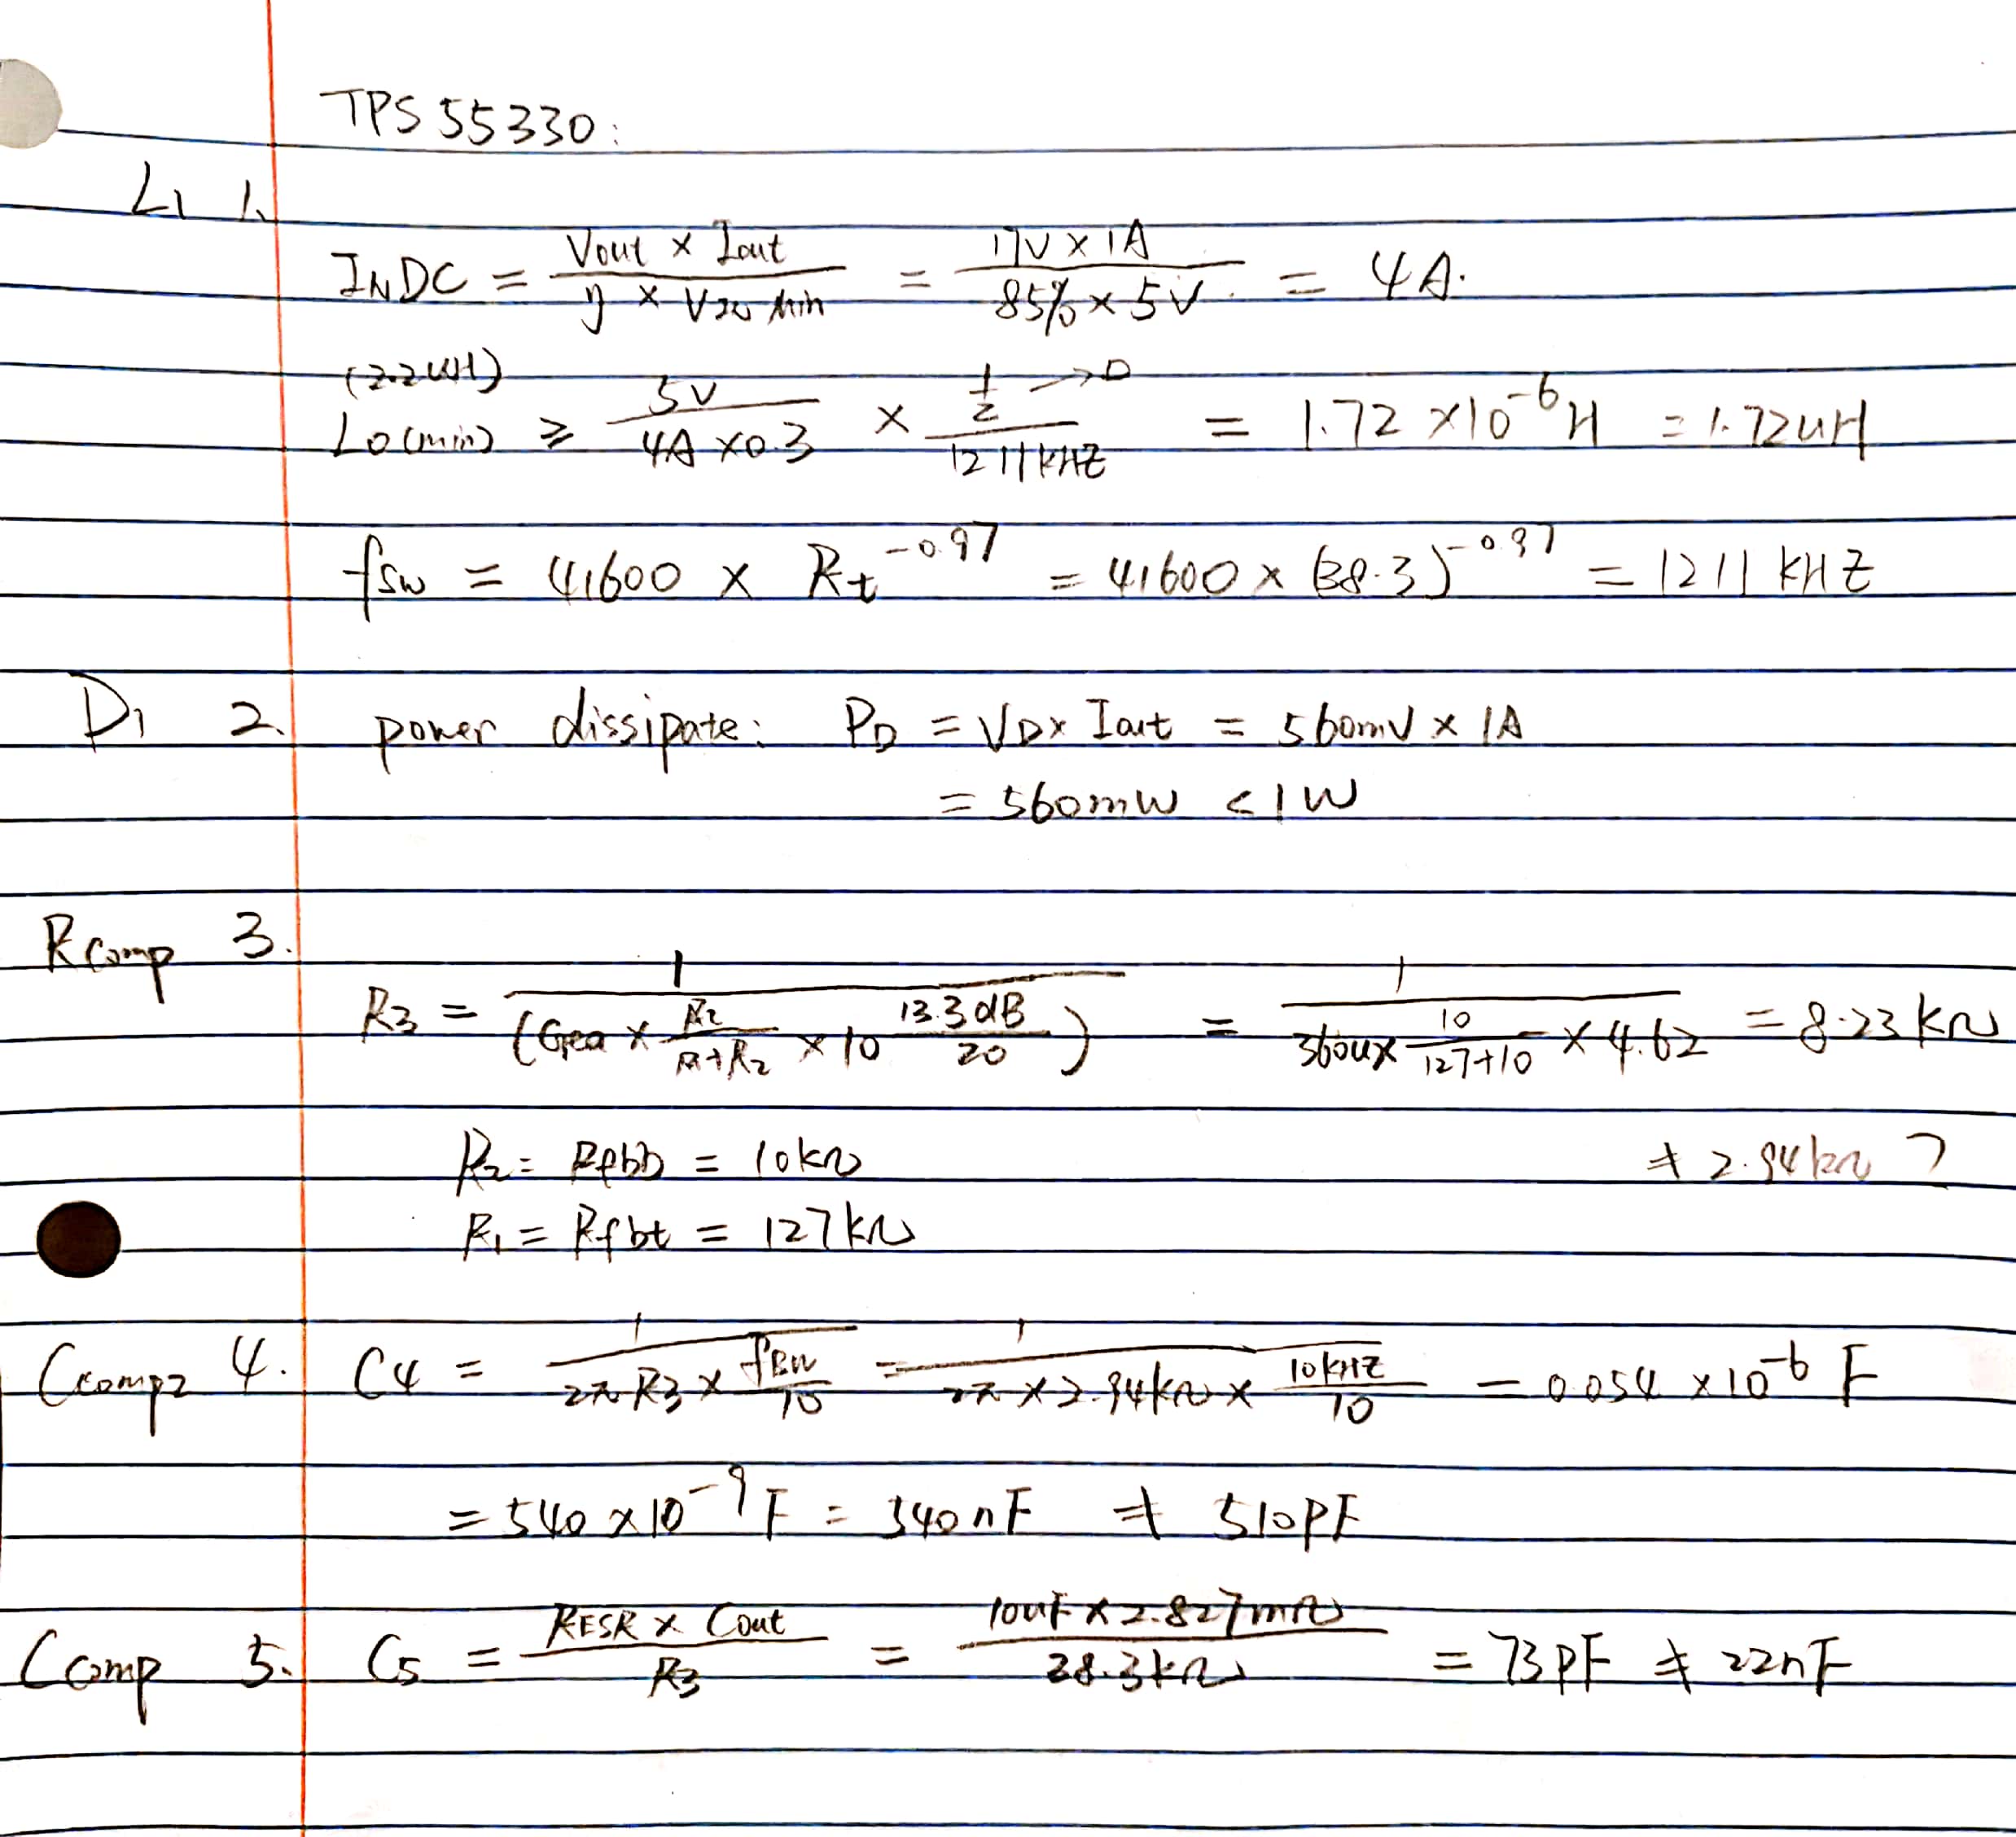 TPS 55330:
L1 1.
INDC = (Vout × Iout) / (η × VIN min) = (17V × 1A) / (85% × 5V) = 4A.
(2.2uH)
Lo(min) ≥ 5V / (4A × 0.3) × (1/2 → D) / 1211kHZ = 1.72 × 10^-6 H = 1.72uH
fsw = 41600 × Rt^-0.97 = 41600 × (38.3)^-0.97 = 1211 kHZ
D1 2. power dissipate: PD = VD × Iout = 560mV × 1A
= 560mW < 1W
Rcomp 3.
R3 = 1 / (Gea × R2/(R1+R2) × 10^(13.3dB/20)) = 1 / (360u × 10/(127+10) × 4.62) = 8.23 kΩ
R2 = Rfbb = 10kΩ ≠ 2.94kΩ ?
R1 = Rfbt = 127kΩ
Ccomp2 4. C4 = 1 / (2π R3 × fBW/10) = 1 / (2π × 2.94kΩ × 10kHZ/10) = 0.054 × 10^-6 F
= 540 × 10^-9 F = 540nF ≠ 510PF
Ccomp 5. C5 = (RESR × Cout) / R3 = (10uF × 2.827mΩ) / 38.3kΩ = 73PF ≠ 22nF